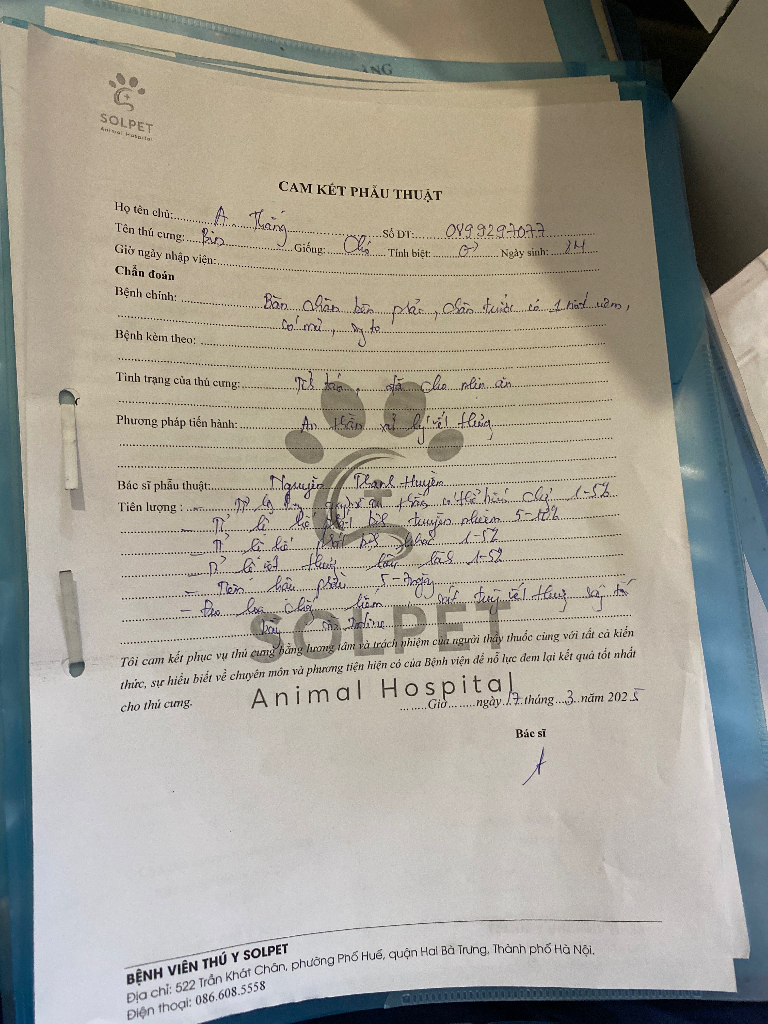 ĂNG
SOLPET
Animal Hospital
CAM KẾT PHẪU THUẬT
Họ tên chủ: A. Thắng Số ĐT: 0899297077
Tên thú cưng: Bin Giống: Chó Tính biệt: ♂ Ngày sinh: 2M
Giờ ngày nhập viện:
Chẩn đoán
Bệnh chính: Bàn chân bên phải, chân trước có 1 viêm,
có mủ, to
Bệnh kèm theo:
Tình trạng của thú cưng: đã cho nhịn ăn
Phương pháp tiến hành: An thần xử lý vết thương
Bác sĩ phẫu thuật: Nguyễn Thanh Huyền
Tiên lượng : - an thần có thể 1-5%
- Tỉ lệ truyền nhiễm 5-10%
- Tỉ lệ khác 1-5%
- Tỉ lệ vết thương lâu lành 1-5%
- hậu phẫu 5-7 ngày
- Đeo loa chống liếm vết thương
SOLPET
Tôi cam kết phục vụ thú cưng bằng lương tâm và trách nhiệm của người thầy thuốc cùng với tất cả kiến
thức, sự hiểu biết về chuyên môn và phương tiện hiện có của Bệnh viện để nỗ lực đem lại kết quả tốt nhất
cho thú cưng.
Animal Hospital
Giờ ngày 17 tháng 3 năm 2025
Bác sĩ
BỆNH VIỆN THÚ Y SOLPET
Địa chỉ: 522 Trần Khát Chân, phường Phố Huế, quận Hai Bà Trưng, Thành phố Hà Nội.
Điện thoại: 086.608.5558